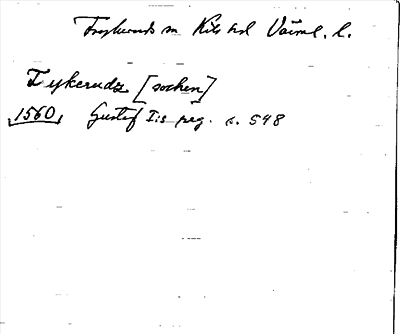 Frykeruds sn Kils hd Värml. l.
Fykerudz [socken]
1560, Gustaf I:s reg. s. 548